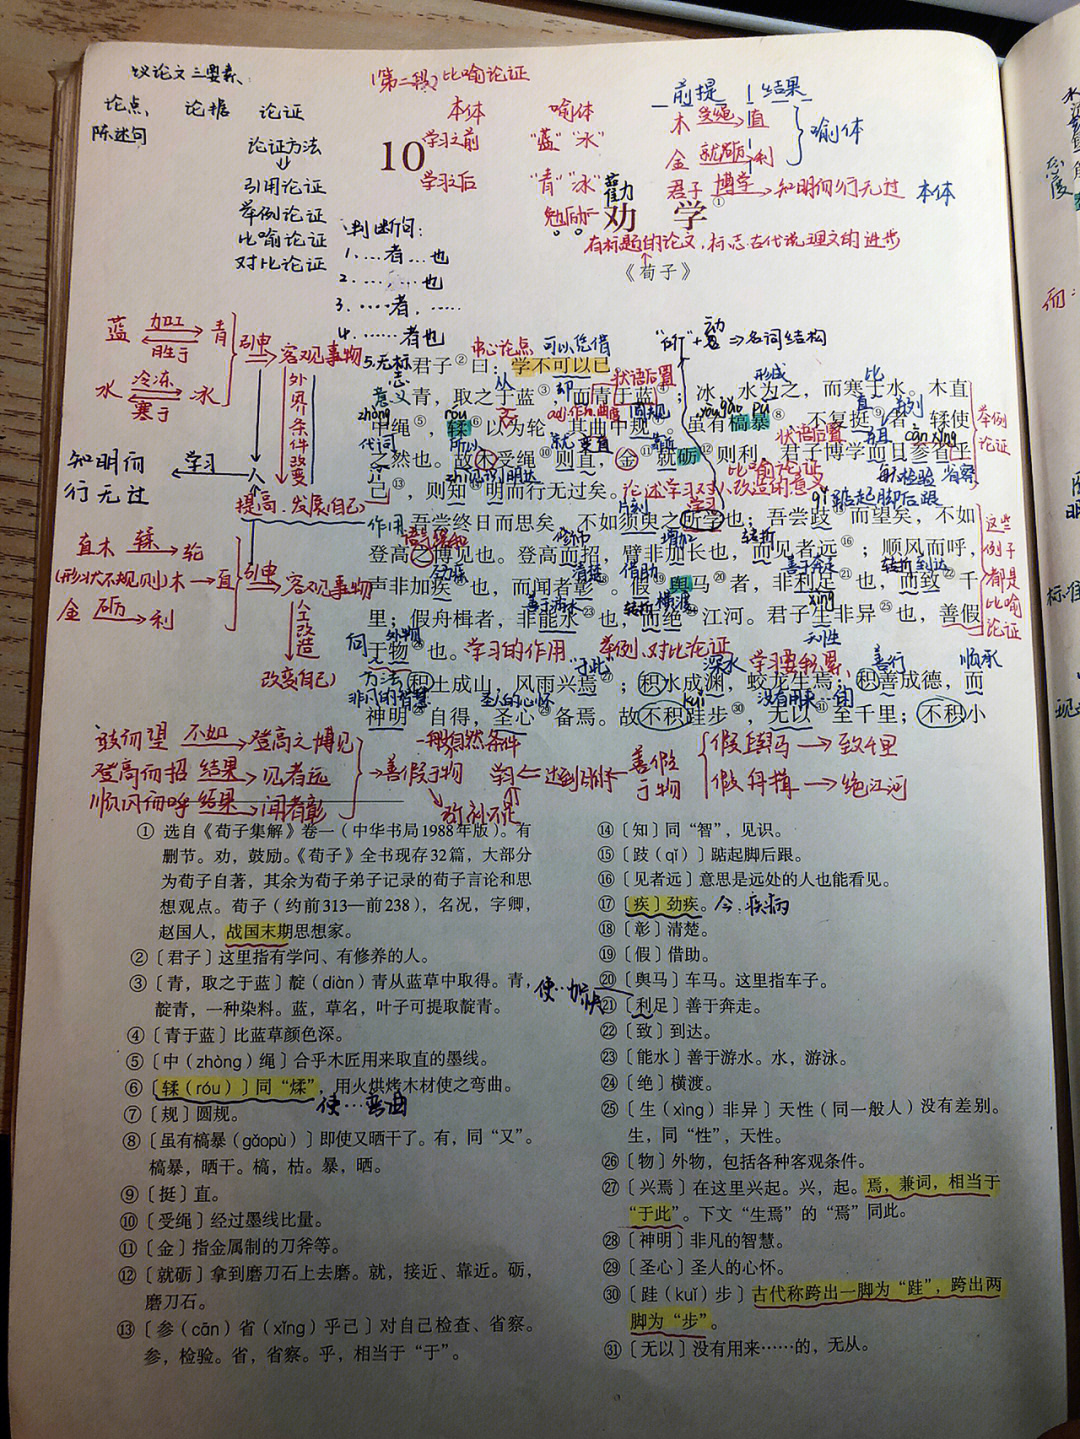 议论文三要素
论点 论据 论证
陈述句
论证方法
引用论证
举例论证
比喻论证
对比论证
(第二段)比喻论证
本体 喻体
学习之前 "蓝" "水"
学习之后 "青" "冰"
前提 结果
木 受绳 直
金 就砺 利
喻体
君子 博学 知明而行无过 本体
10
勉励
劝 学①
有标题的论文,标志古代说理文的进步
《荀子》
判断句:
1.…者…也
2.…也
3.…者,……
4.……者也
5.无标志
蓝 加工 青
胜于
水 冷冻 冰
寒于
引申
客观事物
外界条件改变
人
学习
知明而行无过
提高.发展(自己)
直木 𫐓 轮
(形状不规则)木 直
金 砺 利
引申
客观事物
改造
改变(自己)
中心论点 可以停止
"所"+动 名词结构
君子②曰:学不可以已。
青,取之于蓝③,而青于蓝④;冰,水为之,而寒于水。木直
中绳⑤,𫐓⑥以为轮,其曲中规⑦。虽有槁暴⑧,不复挺⑨者,𫐓使
之然也。故木受绳⑩则直,金⑪就砺⑫则利,君子博学而日参省乎
己⑬,则知⑭明而行无过矣。
论述学习对人改造的意义
举例论证
吾尝终日而思矣,不如须臾之所学也;吾尝跂⑮而望矣,不如
登高之博见也。登高而招,臂非加长也,而见者远⑯;顺风而呼,
声非加疾⑰也,而闻者彰⑱。假⑲舆马⑳者,非利足㉑也,而致㉒千
里;假舟楫者,非能水㉓也,而绝㉔江河。君子生非异㉕也,善假
于物㉖也。
学习的作用 举例、对比论证
这些例子都是比喻论证
积土成山,风雨兴焉㉗;积水成渊,蛟龙生焉;积善成德,而
神明㉘自得,圣心㉙备焉。故不积跬步㉚,无以㉛至千里;不积小
跂而望 不如 登高之博见
登高而招 结果 见者远
顺风而呼 结果 闻者彰
善假于物
善假于物
假舆马 致千里
假舟楫 绝江河
① 选自《荀子集解》卷一(中华书局1988年版)。有
删节。劝,鼓励。《荀子》全书现存32篇,大部分
为荀子自著,其余为荀子弟子记录的荀子言论和思
想观点。荀子(约前313—前238),名况,字卿,
赵国人,战国末期思想家。
②〔君子〕这里指有学问、有修养的人。
③〔青,取之于蓝〕靛(diàn)青从蓝草中取得。青,
靛青,一种染料。蓝,草名,叶子可提取靛青。
④〔青于蓝〕比蓝草颜色深。
⑤〔中(zhòng)绳〕合乎木匠用来取直的墨线。
⑥〔𫐓(róu)〕同“煣”,用火烘烤木材使之弯曲。
使…弯曲
⑦〔规〕圆规。
⑧〔虽有槁暴(gǎopù)〕即使又晒干了。有,同“又”。
槁暴,晒干。槁,枯。暴,晒。
⑨〔挺〕直。
⑩〔受绳〕经过墨线比量。
⑪〔金〕指金属制的刀斧等。
⑫〔就砺〕拿到磨刀石上去磨。就,接近、靠近。砺,
磨刀石。
⑬〔参(cān)省(xǐng)乎己〕对自己检查、省察。
参,检验。省,省察。乎,相当于“于”。
⑭〔知〕同“智”,见识。
⑮〔跂(qǐ)〕踮起脚后跟。
⑯〔见者远〕意思是远处的人也能看见。
⑰〔疾〕劲疾。今:疾病
⑱〔彰〕清楚。
⑲〔假〕借助。
⑳〔舆马〕车马。这里指车子。
使…加快
㉑〔利足〕善于奔走。
㉒〔致〕到达。
㉓〔能水〕善于游水。水,游泳。
㉔〔绝〕横渡。
㉕〔生(xìng)非异〕天性(同一般人)没有差别。
生,同“性”,天性。
㉖〔物〕外物,包括各种客观条件。
㉗〔兴焉〕在这里兴起。兴,起。焉,兼词,相当于
“于此”。下文“生焉”的“焉”同此。
㉘〔神明〕非凡的智慧。
㉙〔圣心〕圣人的心怀。
㉚〔跬(kuǐ)步〕古代称跨出一脚为“跬”,跨出两
脚为“步”。
㉛〔无以〕没有用来……的,无从。